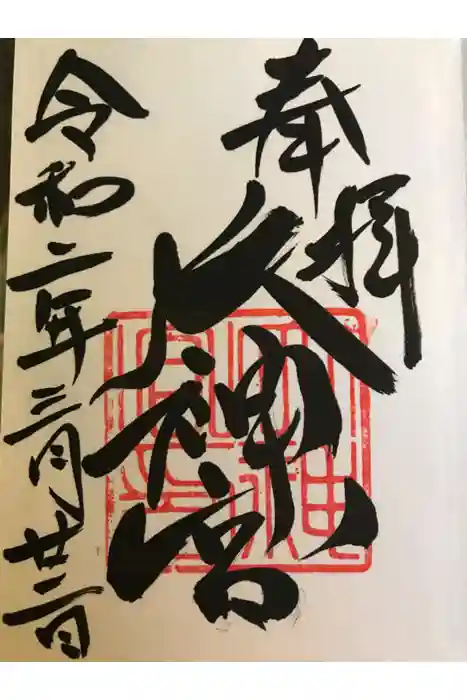 奉拝
神宮
令和二年三月廿二日